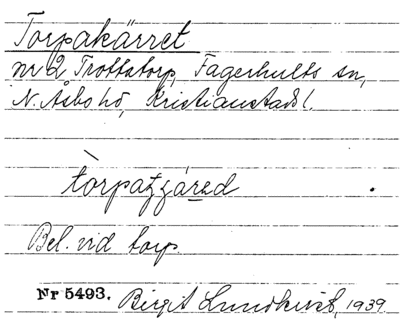 Torpakärret
nr 2 Trottatorp, Fagerhults sn,
N. Åsbo hd, Kristianstads l.
Bel. vid torp.
Nr 5493. Birgit Lundkvist, 1939.